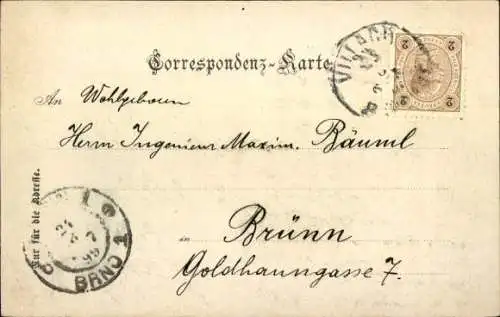 Correspondenz-Karte
VILLACH
2 2
2 2
An Wohlgeboren
Herrn Ingenieur Maxim. Bäuml
in Brünn
Goldhanngasse 7.
Nur für die Adresse.
BRNO 1